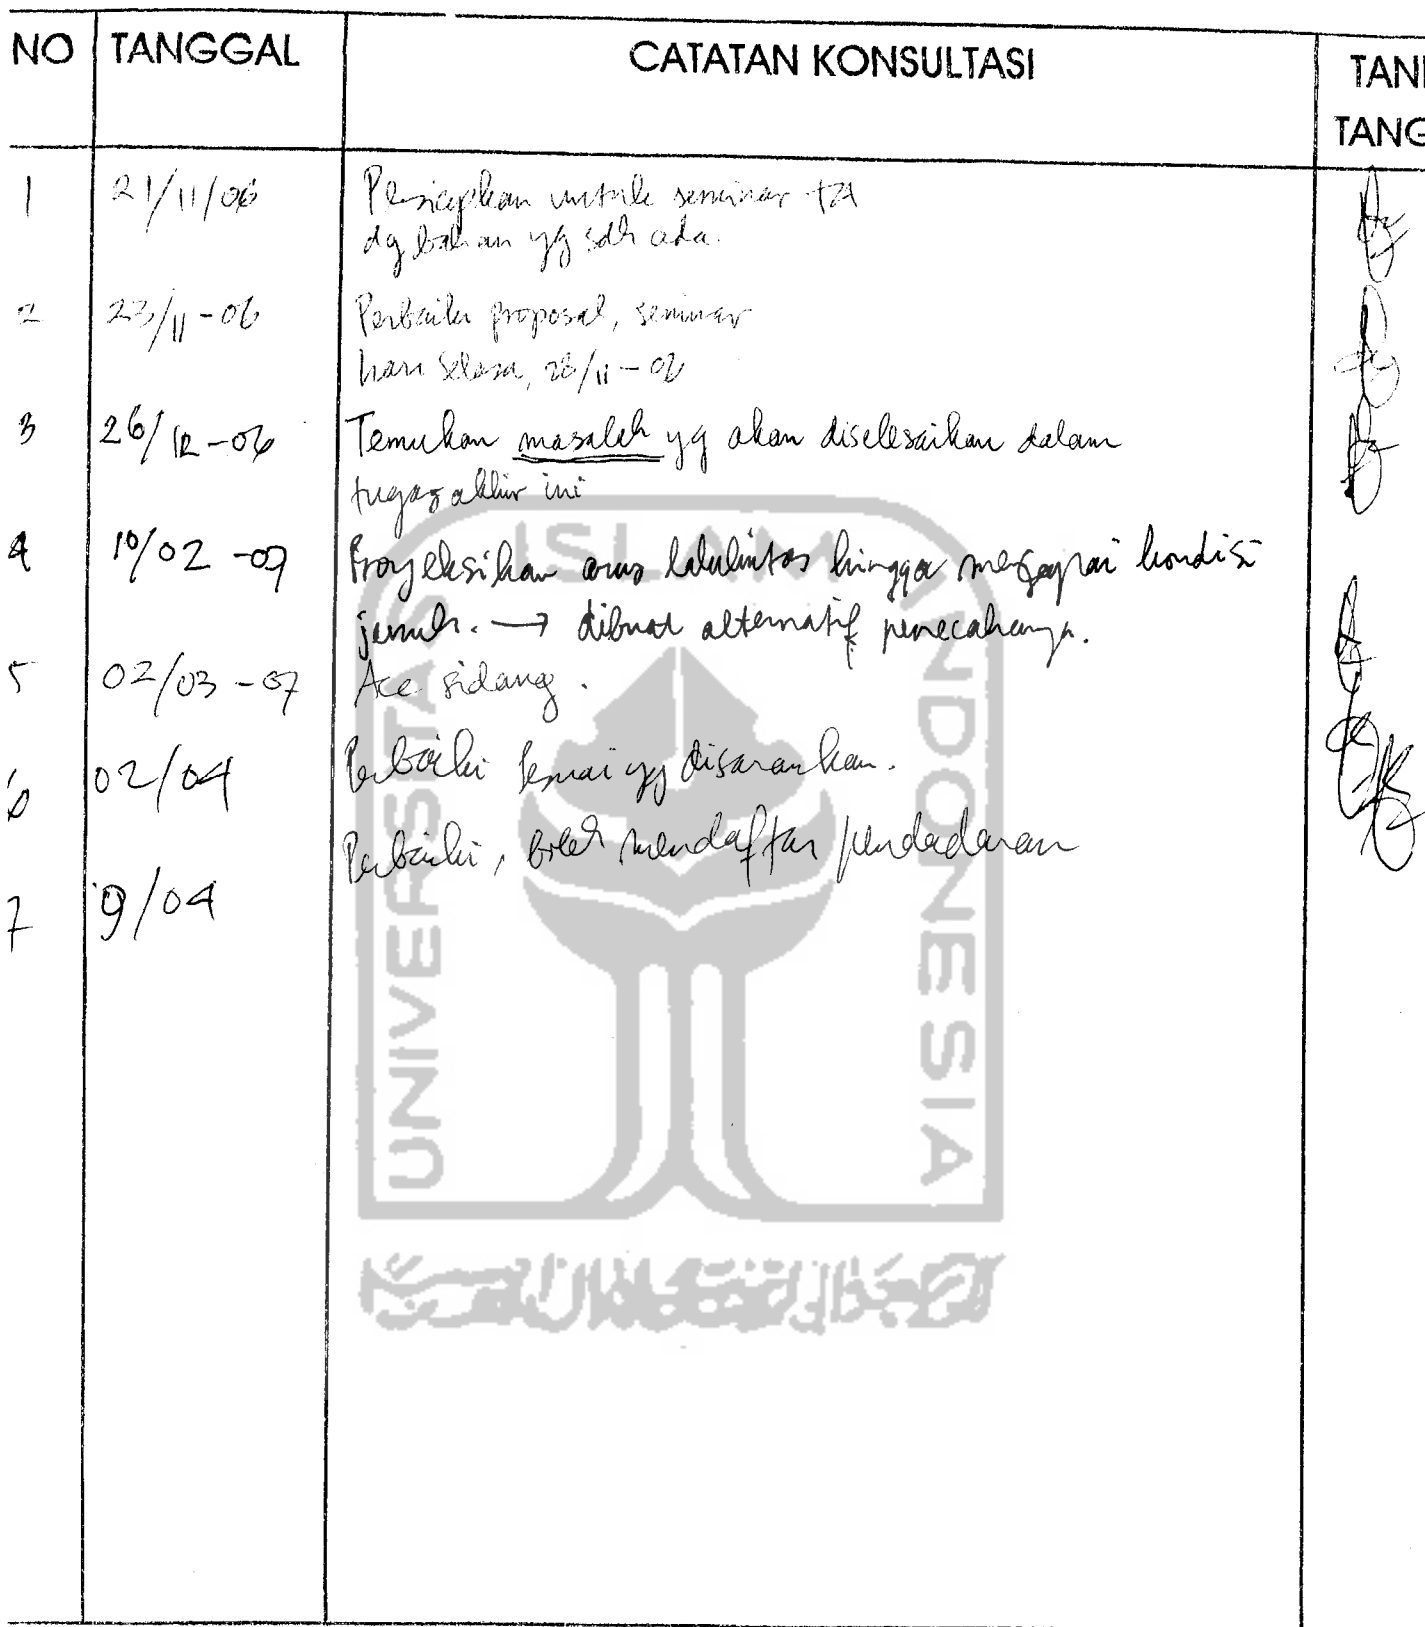 NO TANGGAL CATATAN KONSULTASI TAN
TANG
1 21/11/06 Persiapkan untuk seminar TA
dg bahan yg sdh ada.
2 23/11-06 Perbaiki proposal, seminar
hari Selasa, 28/11-06
3 26/12-06 Temukan masalah yg akan diselesaikan dalam
tugas akhir ini
4 10/02-07 Proyeksikan arus lalulintas hingga mencapai kondisi
jenuh. → dibuat alternatif pemecahannya.
5 02/03-07 Acc sidang.
6 02/04 Perbaiki sesuai yg disarankan.
7 9/04 Perbaiki, boleh mendaftar pendadaran
UNIVERSITAS ISLAM INDONESIA